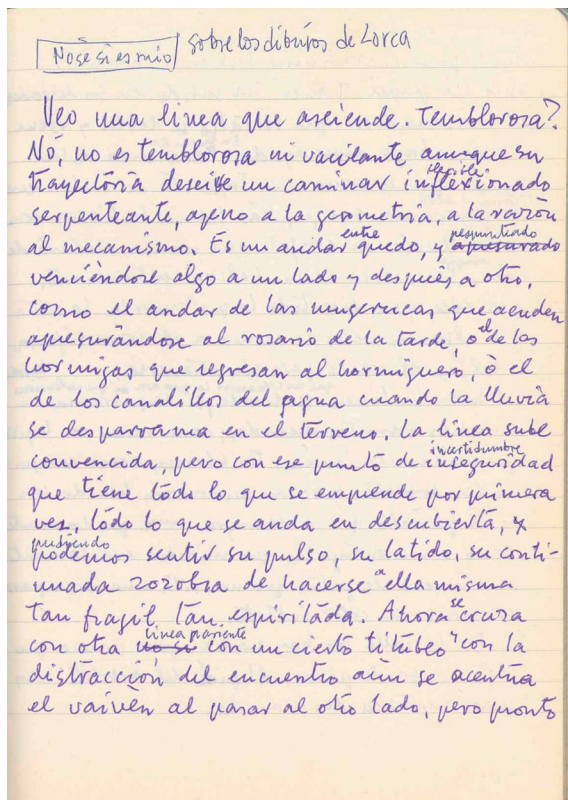 No sé si es mío sobre los dibujos de Lorca
Veo una linea que asciende. Temblorosa?
Nó, no es temblorosa ni vacilante aunque su
flexible
trayectoria describe un caminar inflexionado
serpenteante, ajeno a la geometria, a la razón
entre pespunteado
al mecanismo. Es un andar quedo, y apresurado
venciéndose algo a un lado y después a otro,
como el andar de las mugerucas que acuden
el
apresurándose al rosario de la tarde, o de las
hormigas que regresan al hormiguero, ò el
de los canalillos del agua cuando la lluvia
se desparrama en el terreno. La linea sube
incertidumbre
convencida, pero con ese punto de inseguridad
que tiene tódo lo que se emprende por primera
vez, tódo lo que se anda en descubierta, y
pudiendo
podemos sentir su pulso, su latido, su conti-
nuada zozobra de hacerse a ella misma
se
tan fragil, tan espiritada. Ahora cruza
linea pariente y
con otra no sé con un cierto titubeo con la
distracción del encuentro aún se acentúa
el vaivén al pasar al otro lado, pero pronto